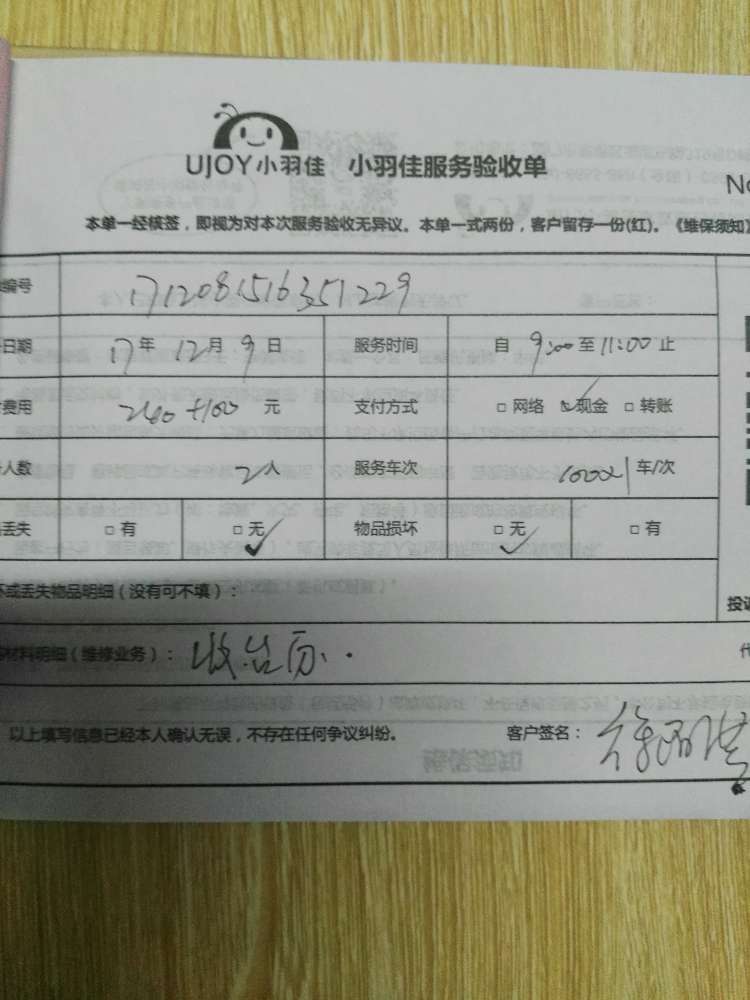 UJOY小羽佳 小羽佳服务验收单
No
本单一经核签，即视为对本次服务验收无异议。本单一式两份，客户留存一份(红)。《维保须知》
编号 1712081516351229
日期 17年12月9日 服务时间 自9:00至11:00止
费用 260+100元 支付方式 □网络 ☑现金 □转账
人数 2人 服务车次 车/次
丢失 □有 □无✓ 物品损坏 □无✓ □有
坏或丢失物品明细（没有可不填）：
投诉
材料明细（维修业务）： 收台历.
以上填写信息已经本人确认无误，不存在任何争议纠纷。 客户签名：